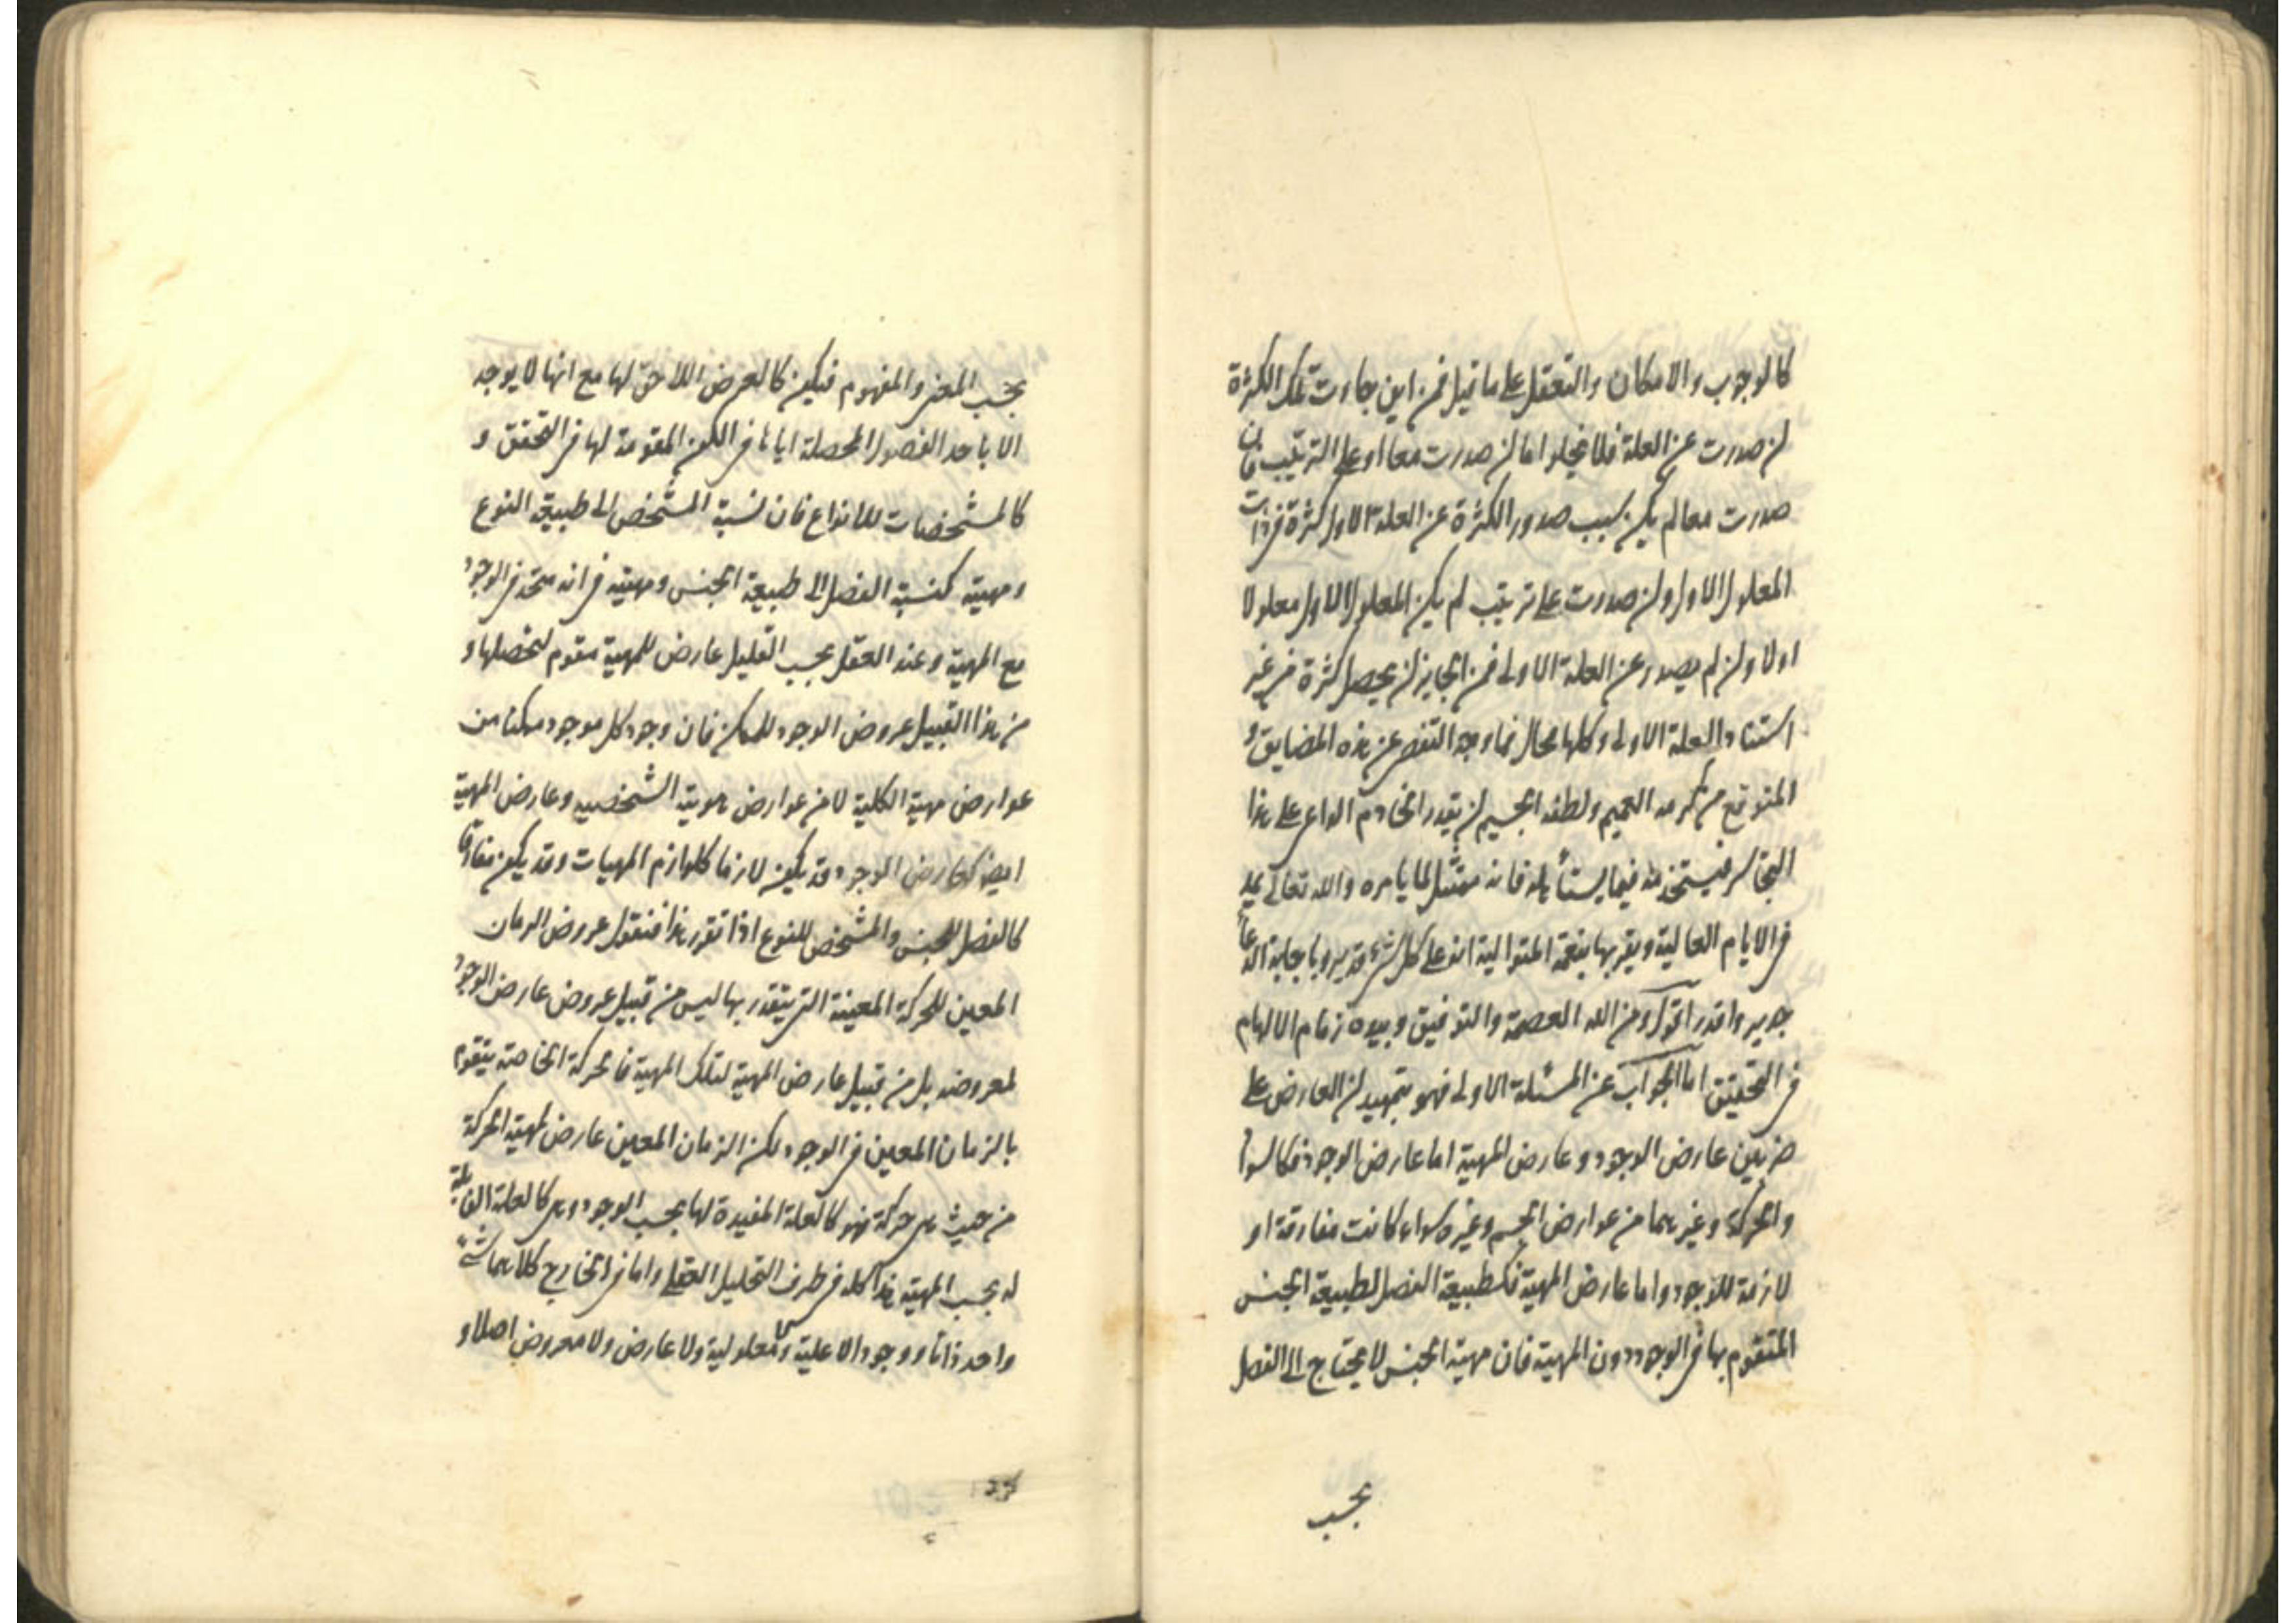 كالوجوب والامكان والتعقل على ما قيل فمن اين جاءت تلك الكثرة
لن صدرت عن العلة فلا يخلو اما لن صدرت معا او على الترتيب فان
صدرت معا لم يكن بسبب صدور الكثرة عن العلة الاولى كثرة في ذات
المعلول الاول ولن صدرت على ترتيب لم يكن المعلول الاول معلولا
اولا ولن لم يصدر عن العلة الاولى فمن الجايز لن يحصل كثرة من غير
استناد العلة الاولى وكلها محال فما وجه التفصي عن هذه المضايق و
المتوقع من كرمه العميم ولطفه الجسيم لن يقدر الخادم الداعي على هذا
التجاسر فيستخدمه فيما يستأهله فانه ممتثل لما يامره والله تعالى يمد
في الايام العالية ويقربها بنعمه المتوالية انه على كل شيء قدير وباجابة الدعا
جدير واقدر اقول ومن الله العصمة والتوفيق وبيده زمام الالهام
في التحقيق اما الجواب عن المسئلة الاولى فهو بتمهيد لن العارض على
ضربين عارض الوجود وعارض المهية اما عارض الوجود فكالسواد
والحركة وغيرهما من عوارض الجسم وغيره سواء كانت مفارقة او
لازمة للوجود واما عارض المهية فكطبيعة الفصل لطبيعة الجنس
المتقوم بها في الوجود دون المهية فان مهية الجنس لا يحتاج الى الفصل
بحسب
بحسب المعنى والمفهوم فيكون كالعرض اللاحق لها مع انها لا يوجد
الا باحد الفصول المحصلة اياها في الكون المقومة لها في التحقق و
كالمشخصات للانواع فان نسبة المشخص الى طبيعة النوع
ومهيته كنسبة الفصل الى طبيعة الجنس ومهيته في انه متحد في الوجود
مع المهية وعند العقل بحسب التحليل عارض للمهية مقوم لتحصلها و
من هذا القبيل عروض الوجود للممكن فان وجود كل موجود ممكنا من
عوارض مهية الكلية لا من عوارض هويته الشخصية وعارض المهية
ايضا كعارض الوجود قد يكون لازما كلوازم المهيات وقد يكون مفارقا
كالفصل للجنس والمشخص للنوع اذا تقرر هذا فنقول عروض الزمان
المعين للحركة المعينة التي يتقدر بها ليس من قبيل عروض عارض الوجود
لمعروضه بل من قبيل عارض المهية لتلك المهية فالحركة الخاصة يتقوم
بالزمان المعين في الوجود لكن الزمان المعين عارض لمهية الحركة
من حيث هي حركة فهو كالعلة المفيدة لها بحسب الوجود وهي كالعلة القابلية
له بحسب المهية هذا كله في ظرف التحليل العقلي واما في الخارج كلاهما شيء
واحد ذاتا ووجودا لا علية ولا معلولية ولا عارض ولا معروض اصلا و